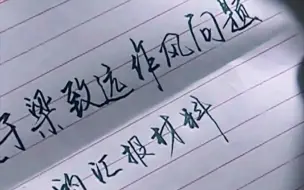 于梁致远作风问题
的汇报材料